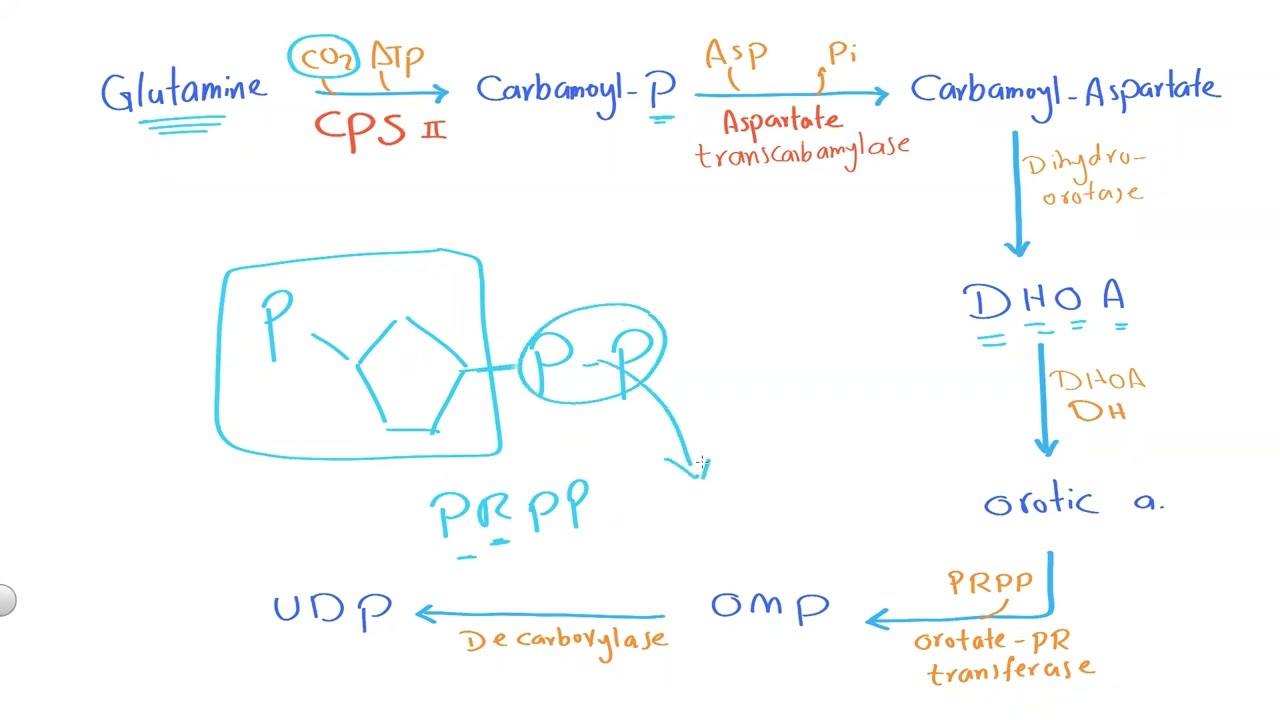 Glutamine
CO2 ATP
CPS II
Carbamoyl-P
Asp Pi
Aspartate
transcarbamylase
Carbamoyl-Aspartate
Dihydro-
orotase
DHOA
DHOA
DH
orotic a.
PRPP
orotate-PR
transferase
OMP
Decarboxylase
UDP
P
P-P
PRPP